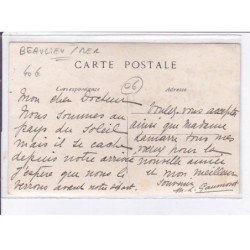 BEAULIEU / MER
406
06
CARTE POSTALE
Correspondance
Adresse
Mon cher Docteur
Nous sommes au
pays du Soleil
mais il se cache
depuis notre arrivée
J'espère que nous le
verrons avant notre départ.
Voulez vous accepter
ainsi que Madame
tous mes
voeux pour la
nouvelle année
et mon meilleur
Souvenir
L. Gaumont